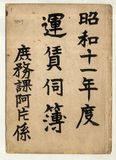 昭和十一年度
運賃伺簿
庶務課阿片係